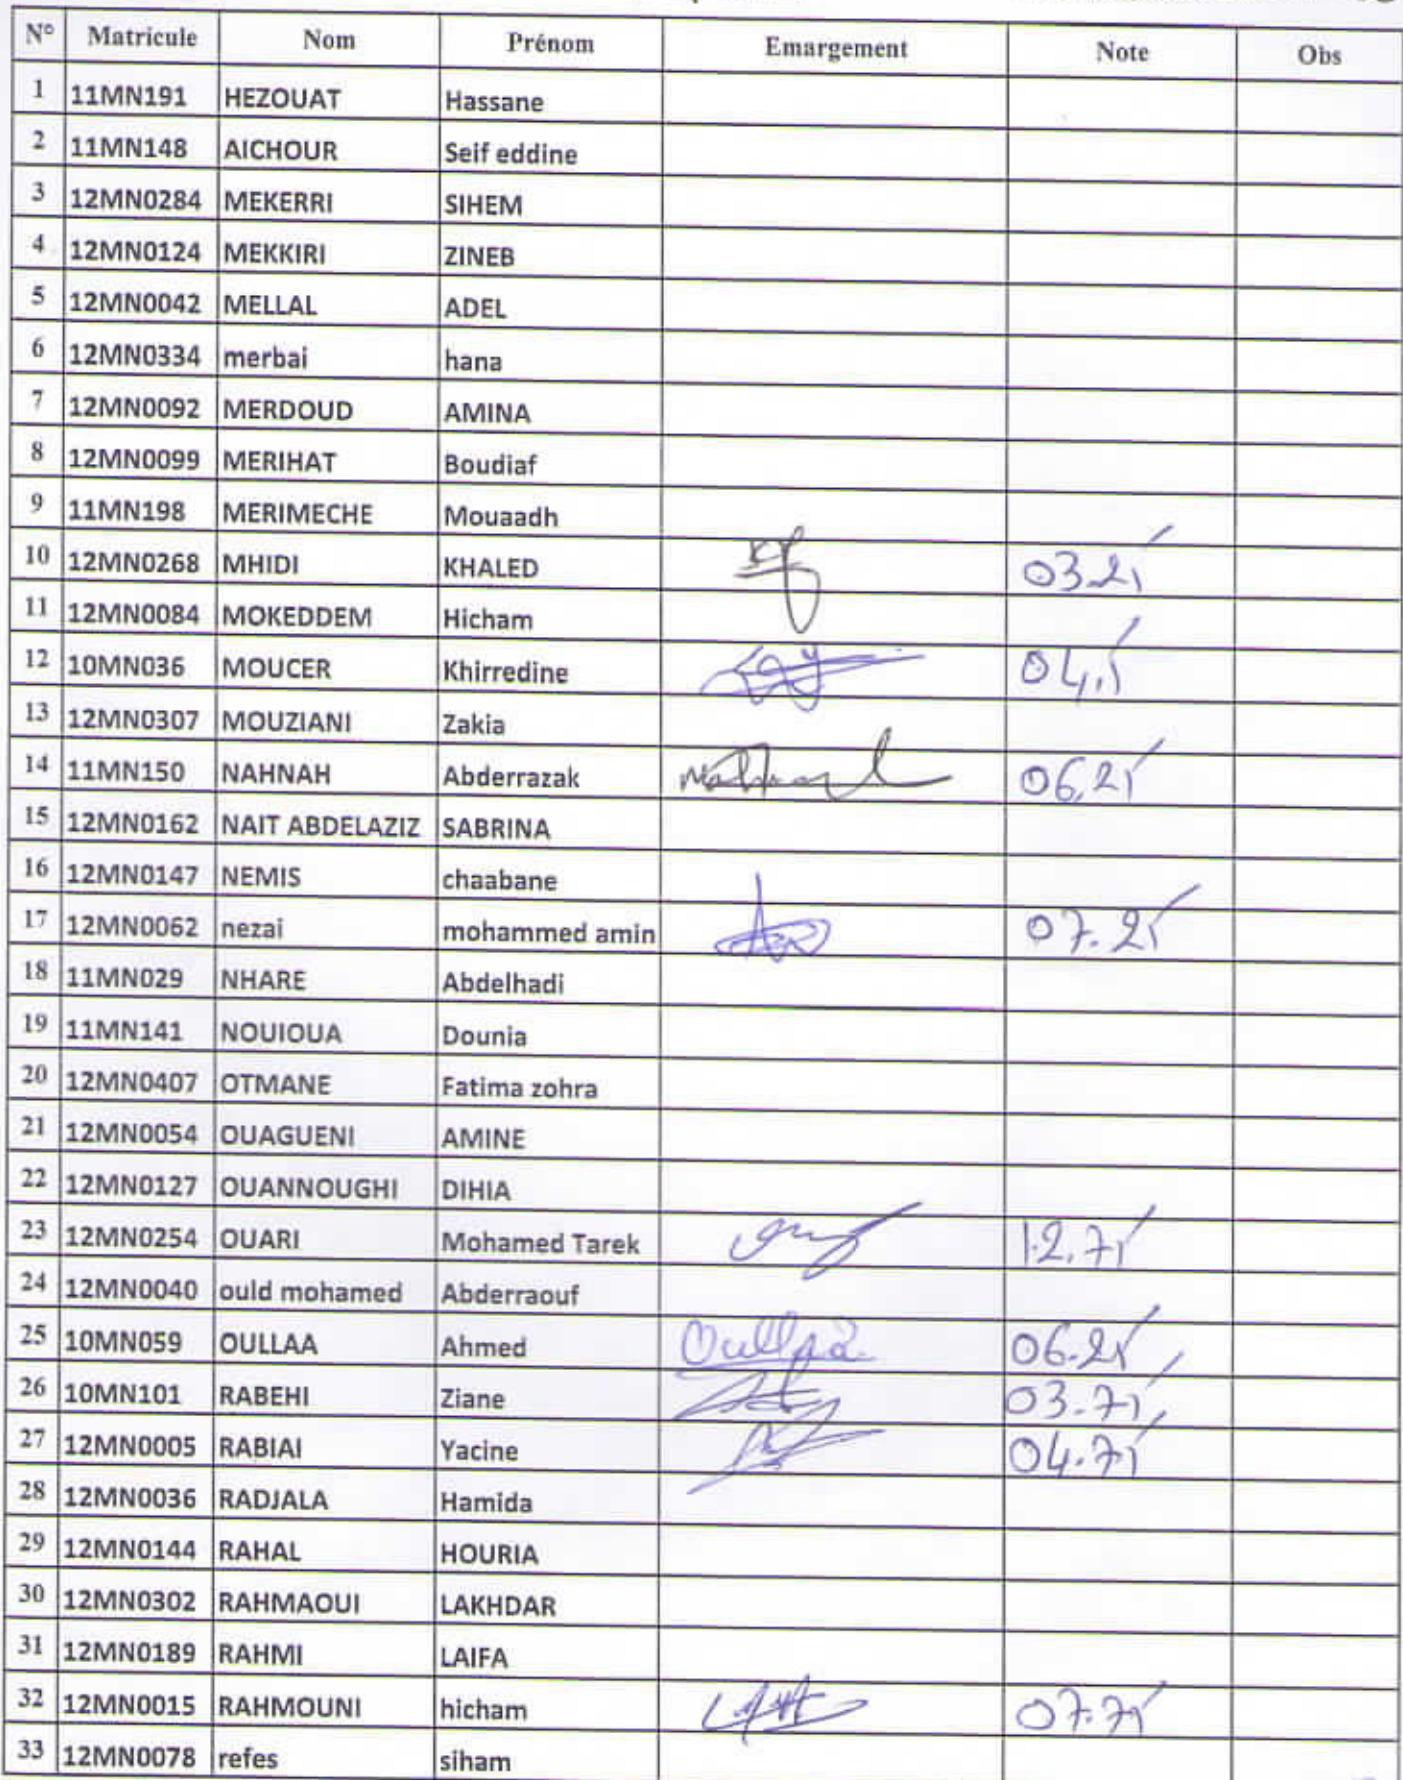 N° Matricule Nom Prénom Emargement Note Obs
1 11MN191 HEZOUAT Hassane
2 11MN148 AICHOUR Seif eddine
3 12MN0284 MEKERRI SIHEM
4 12MN0124 MEKKIRI ZINEB
5 12MN0042 MELLAL ADEL
6 12MN0334 merbai hana
7 12MN0092 MERDOUD AMINA
8 12MN0099 MERIHAT Boudiaf
9 11MN198 MERIMECHE Mouaadh
10 12MN0268 MHIDI KHALED 03.25
11 12MN0084 MOKEDDEM Hicham
12 10MN036 MOUCER Khirredine 04,5
13 12MN0307 MOUZIANI Zakia
14 11MN150 NAHNAH Abderrazak 06,25
15 12MN0162 NAIT ABDELAZIZ SABRINA
16 12MN0147 NEMIS chaabane
17 12MN0062 nezai mohammed amin 07.25
18 11MN029 NHARE Abdelhadi
19 11MN141 NOUIOUA Dounia
20 12MN0407 OTMANE Fatima zohra
21 12MN0054 OUAGUENI AMINE
22 12MN0127 OUANNOUGHI DIHIA
23 12MN0254 OUARI Mohamed Tarek 12.75
24 12MN0040 ould mohamed Abderraouf
25 10MN059 OULLAA Ahmed Oullaa 06.25
26 10MN101 RABEHI Ziane 03.75
27 12MN0005 RABIAI Yacine 04.75
28 12MN0036 RADJALA Hamida
29 12MN0144 RAHAL HOURIA
30 12MN0302 RAHMAOUI LAKHDAR
31 12MN0189 RAHMI LAIFA
32 12MN0015 RAHMOUNI hicham 07.75
33 12MN0078 refes siham